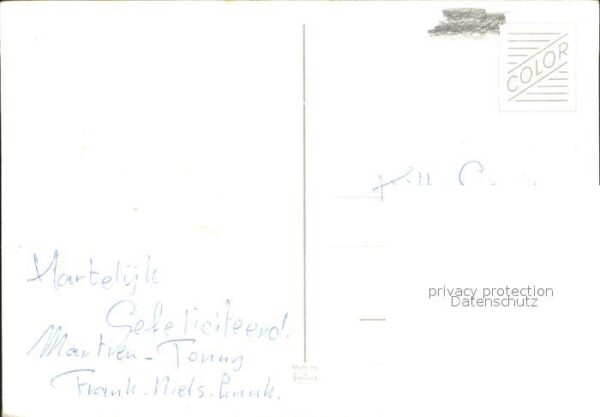 COLOR
Hartelijk
Gefeliciteerd!
Martien - Tonny
Frank. Niels.
Made by
privacy protection
Datenschutz